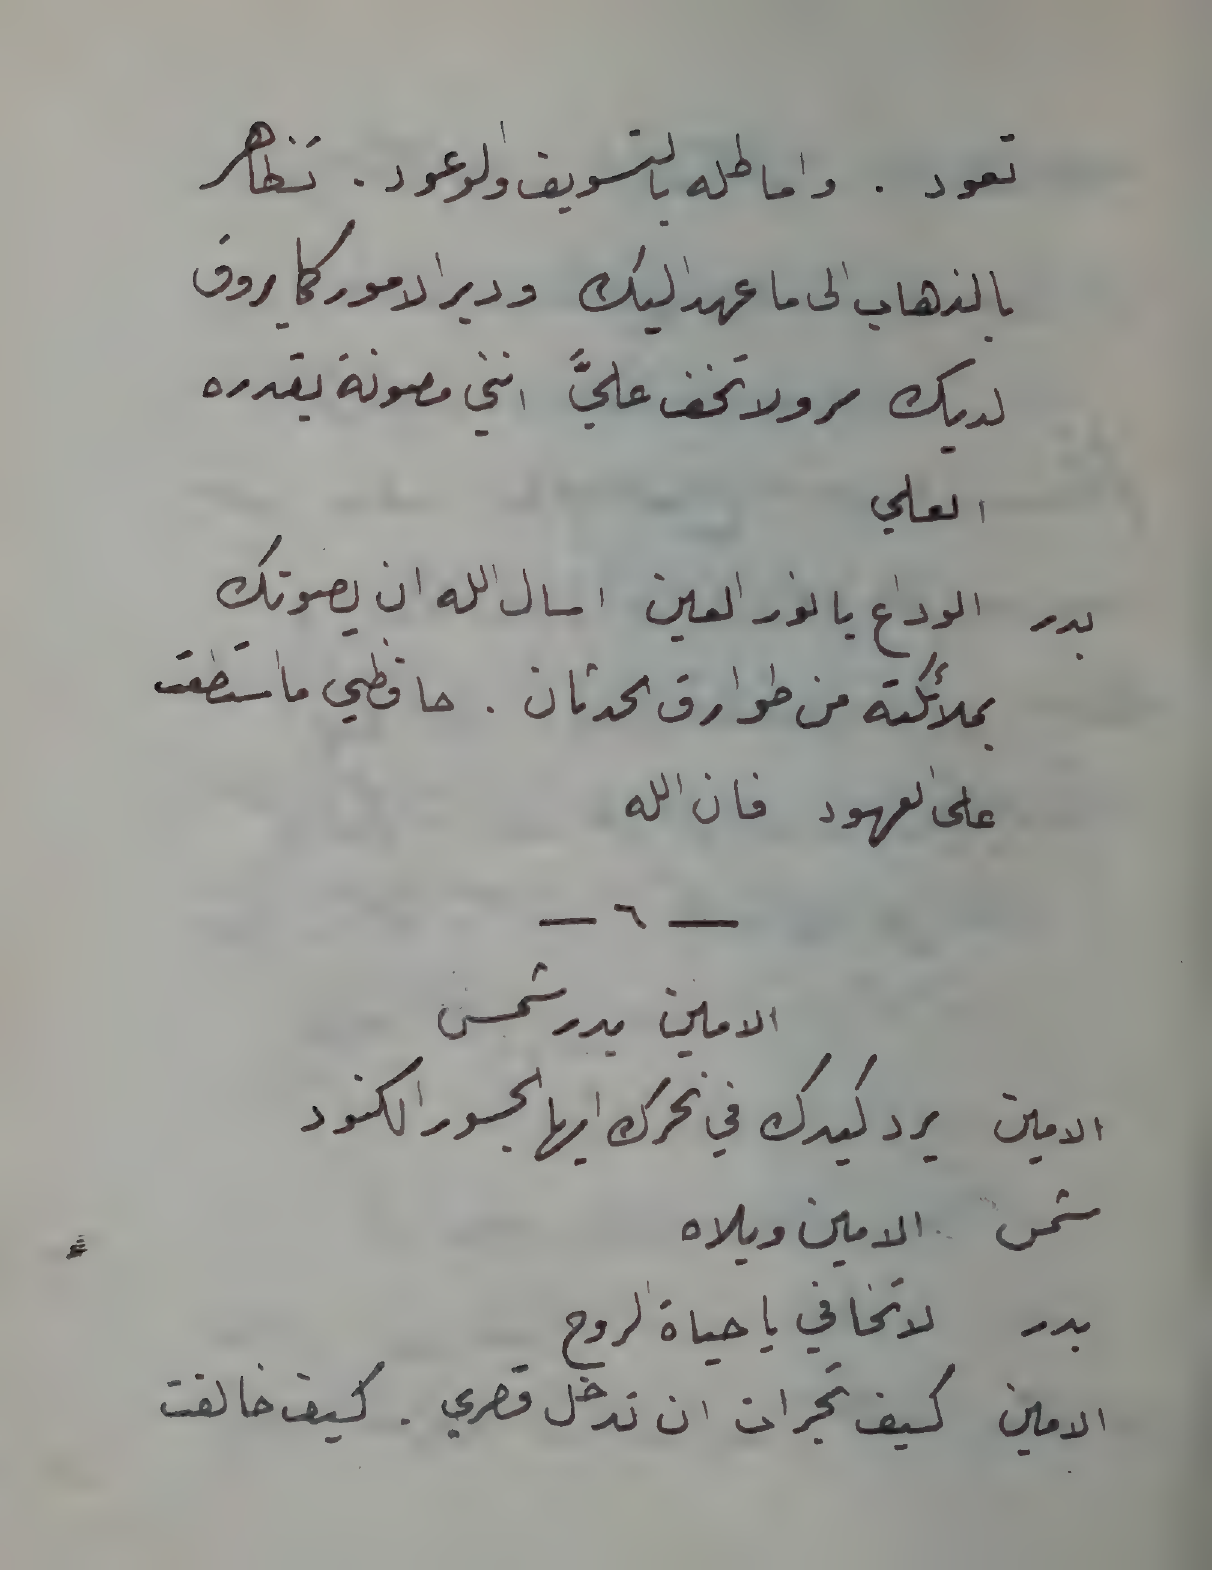 تعود . واماطله بالتسويف والوعود . تظاهر
بالذهاب الى ما عهد اليك ودبر الامور كما يروق
لديك سر ولا تخف عليَّ انني مصونة بقدره
العلي
بدر الوداع يا نور العين اسال الله ان يصونك
بملائكته من طوارق الحدثان . حافظي ما استطعت
على العهود فان الله
— ٦ —
الامين بدر شمس
الامين يرد كيدك في نحرك ايها الجسور الكنود
شمس الامين ويلاه
بدر لا تخافي يا حياة الروح
الامين كيف تجرات ان تدخل قصري . كيف خالفت